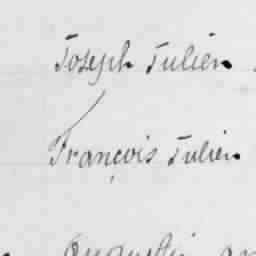 Joseph Julien
François Julien
Augustin